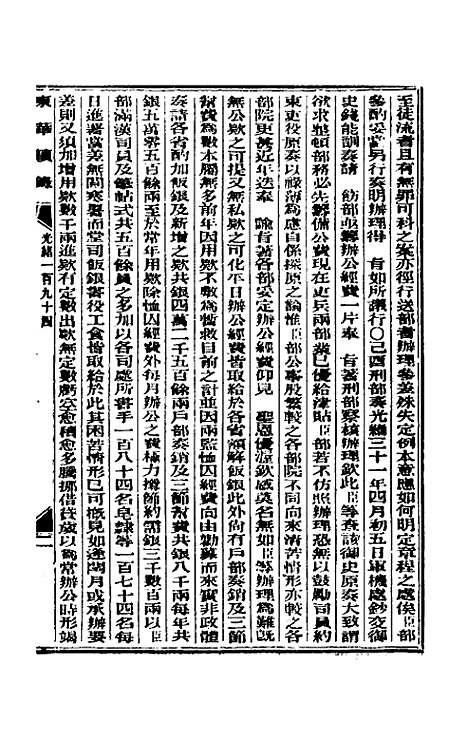 至徒流者且有無罪可科之案亦徑行送部書辦理參差殊失定例本意應如何明定章程之處俟臣部
參酌妥當另行奏明辦理得 旨如所議行〇己酉刑部奏光緒三十一年四月初五日軍機處鈔交御
史錢能訓奏請 飭部籌辦公經費一片奉 旨著刑部察核辦理欽此臣等查該御史原奏大致謂
欲求整頓部務必先籌備公費現在吏兵兩部業已優給津貼臣部若不仿照辦理恐無以鼓勵司員約
束吏役原奏以祿薄為慮自係探原之論惟臣部公事殷繁較之各部院不同向來清苦情形亦較之各
部院更甚近年迭奉 諭旨著各部妥定辦公經費仰見 聖恩優渥欽感莫名無如臣等辦理為難既
無公款之可提又無私款之可化平日辦公經費皆取給於各省額解飯銀此外尚有戶部奏銷及三節
幫費為數本屬無多前年因用款不敷為舊救目前之計並因兩監恤囚經費向由勸募而來實非政體
奏請各省酌加飯銀及新增之款共銀四萬二千五百餘兩戶部奏銷及三節幫費共銀八千兩每年共
銀五萬零五百餘兩至於常年用款除恤囚經費外每月辦公之費極力撙節約需銀三千數百兩以臣
部滿漢司員及筆帖式共五百餘員之多加以各司處所書手一百八十四名皂隸等一百七十四名每
日進署當差無間寒暑而堂司飯銀署役工食皆取給於此其困苦情形已可概見如逢閏月或承辦要
差則又須加增用款數千兩進款有定數出款無定數虧空愈積愈多騰挪借貸歲以為常辦公時形竭
東華續錄 光緒一百九十四 二